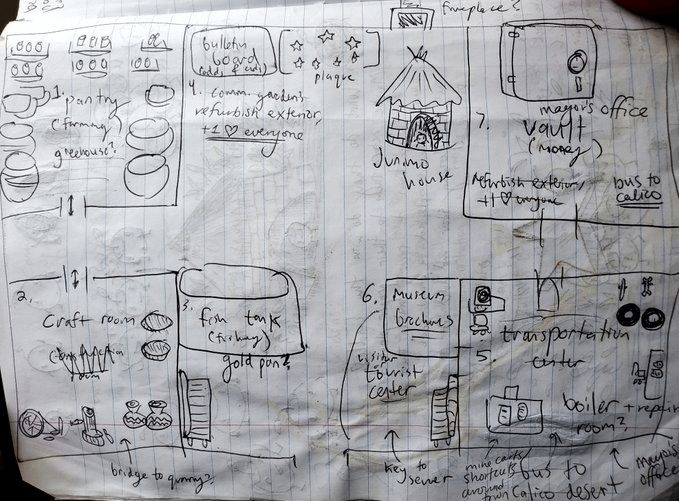 fireplace?
bulletin
board
(odds & ends)
plaque
4. comm. gardens
refurbish exterior,
+1 ♡ everyone
1. pantry
(farming)
greenhouse?
Junimo
house
mayor's office
7.
vault
(money)
refurbish exterior,
+1 ♡ everyone
bus to
calico
2.
craft room
room
3. fish tank
(fishing)
gold pan?
bridge to quarry?
6. museum
brochures
visitor
tourist
center
key to
sewer
5.
transportation
center
boiler
room?
+ repair
minecarts
shortcuts
around
town
bus to
calico desert
mayor's
office